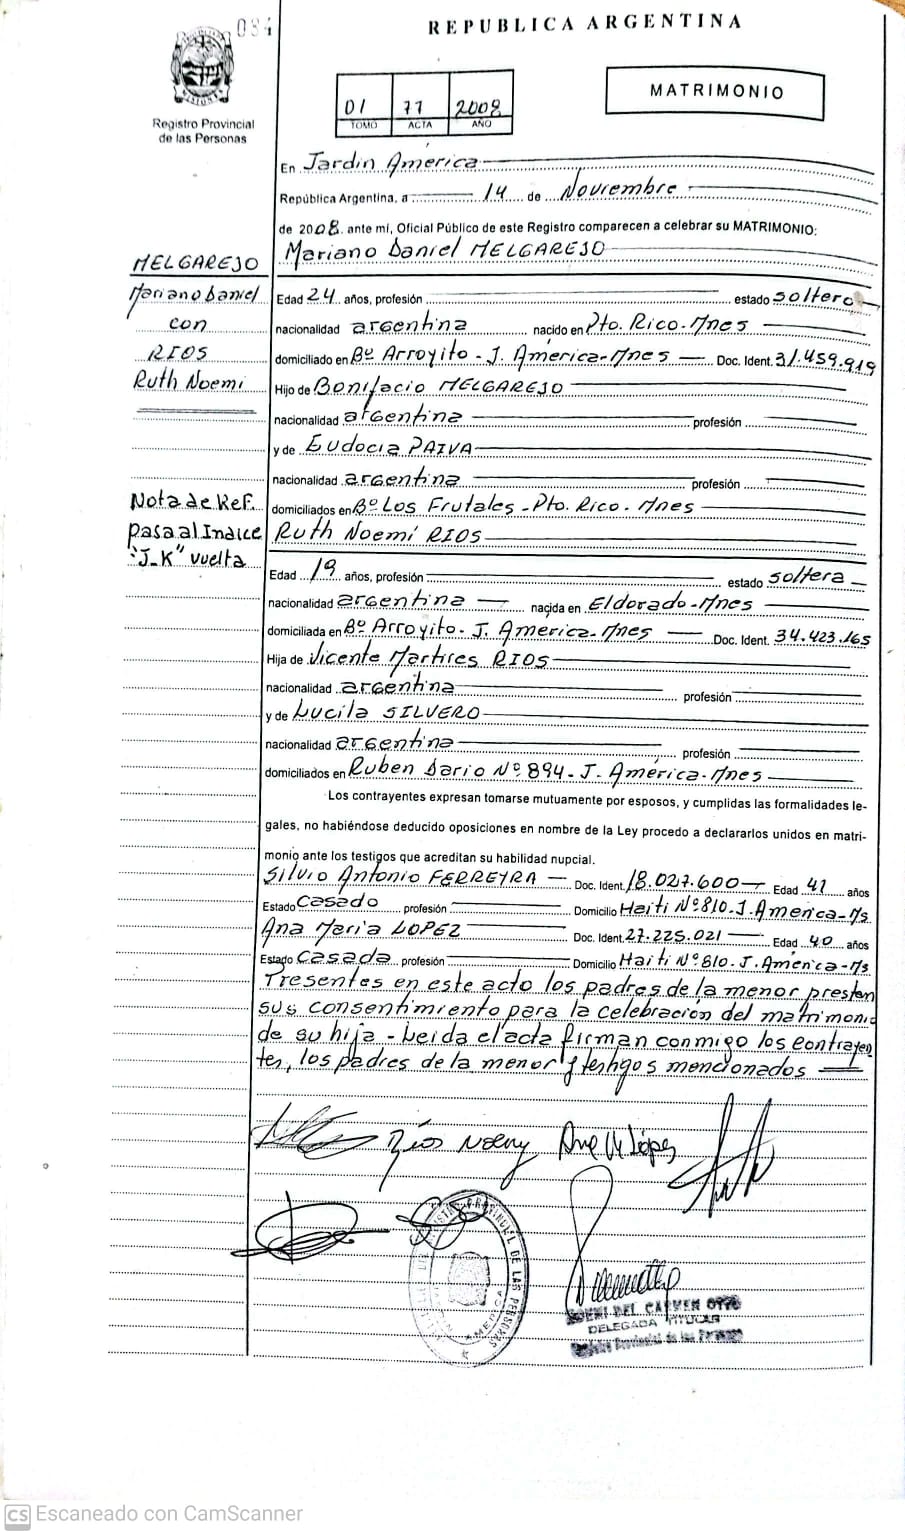 084
REPUBLICA ARGENTINA
MATRIMONIO
Registro Provincial
de las Personas
01 77 2008
TOMO ACTA AÑO
En Jardin America
República Argentina, a 14 de Noviembre
de 2008 ante mí, Oficial Público de este Registro comparecen a celebrar su MATRIMONIO:
Mariano Daniel MELGAREJO
MELGAREJO
Mariano Daniel
con
RIOS
Ruth Noemi
Edad 24 años, profesión estado soltero
nacionalidad argentina nacido en Pto. Rico-Mnes
domiciliado en Bº Arroyito - J. América-Mnes Doc. Ident. 31.459.919
Hijo de Bonifacio MELGAREJO
nacionalidad argentina profesión
y de Eudocia PAIVA
nacionalidad argentina profesión
domiciliados en Bº Los Frutales - Pto. Rico - Mnes
Nota de Ref.
Pasa al Indice
"J-K" vuelta
Ruth Noemí RIOS
Edad 19 años, profesión estado soltera
nacionalidad argentina nacida en Eldorado-Mnes
domiciliada en Bº Arroyito - J. América-Mnes Doc. Ident. 34.423.165
Hija de Vicente Martires RIOS
nacionalidad argentina profesión
y de Lucila SILVERO
nacionalidad argentina profesión
domiciliados en Ruben Dario Nº 894 - J. América-Mnes
Los contrayentes expresan tomarse mutuamente por esposos, y cumplidas las formalidades le-
gales, no habiéndose deducido oposiciones en nombre de la Ley procedo a declararlos unidos en matri-
monio ante los testigos que acreditan su habilidad nupcial.
Silvio Antonio FERREYRA Doc. Ident. 18.027.600 Edad 41 años
Estado Casado profesión Domicilio Haiti Nº 810 - J. América-Ms
Ana María LOPEZ Doc. Ident. 27.225.021 Edad 40 años
Estado Casada profesión Domicilio Haiti Nº 810 - J. América-Ms
Presentes en este acto los padres de la menor prestan
sus consentimiento para la celebración del matrimonio
de su hija - Leida el acta firman conmigo los contrayen
tes, los padres de la menor y testigos mencionados
Ríos Noemy Ana M López
PROVINCIAL DE LAS PERSONAS
AMERICA
NOEMI DEL CARMEN OTTO
DELEGADA TITULAR
Registro Provincial de las Personas
CS Escaneado con CamScanner